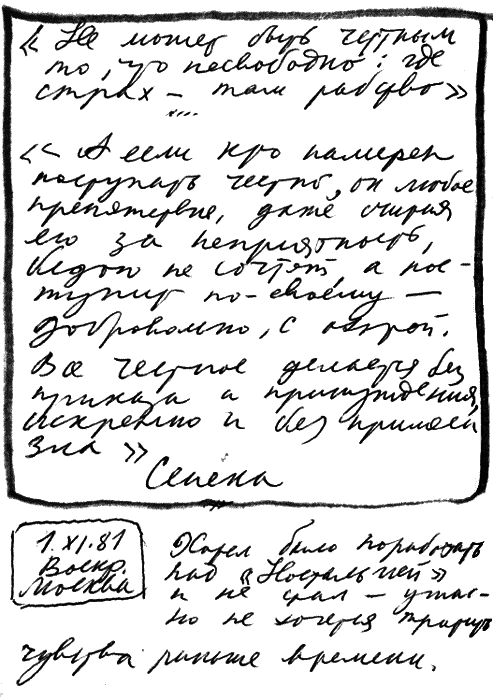 «Не может быть честным
то, что несвободно: где
страх – там рабство»
«А если кто намерен
поступать честно, он любое
препятствие, даже считая
его за неприятность,
бедою не сочтет, а пос-
тупит по-своему —
добровольно, с охотой.
Все честное делается без
приказа и принуждения,
искренно и без примеси
зла»
Сенека
1.XI.81
Воскр.
Москва
Хотел было поработать
над «Ностальгией»
и не стал – ужас-
но не хочется тратить
чувства раньше времени.